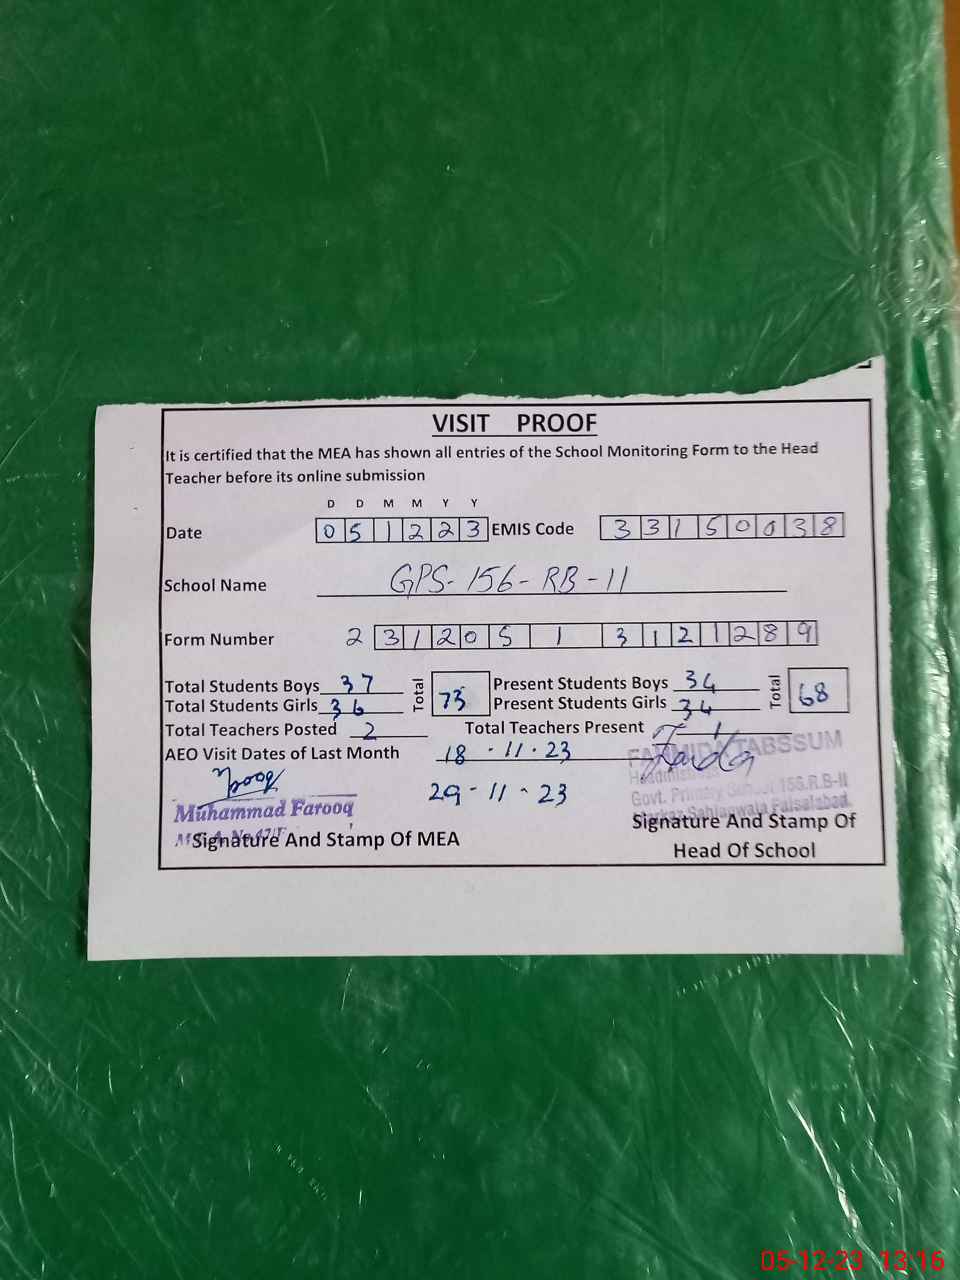 VISIT PROOF
It is certified that the MEA has shown all entries of the School Monitoring Form to the Head
Teacher before its online submission
D D M M Y Y
Date 0 5 1 2 2 3 EMIS Code 3 3 1 5 0 0 3 8
School Name GPS-156-RB-11
Form Number 2 3 1 2 0 5 1 3 1 2 1 2 8 9
Total Students Boys 37 Total 73 Present Students Boys 34 Total 68
Total Students Girls 36 Present Students Girls 34
Total Teachers Posted 2 Total Teachers Present 1
AEO Visit Dates of Last Month 18 - 11 - 23
29 - 11 - 23
TABSSUM
Headmistress
Govt. Primary School 156.R.B-II
Markaz Sahianwala Faisalabad.
Muhammad Farooq
Signature And Stamp Of MEA
Signature And Stamp Of
Head Of School
05-12-23 13:16